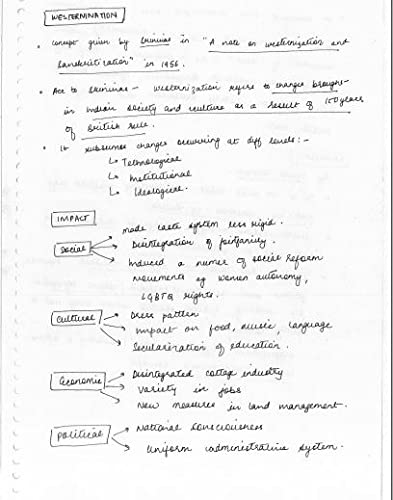 WESTERNIZATION
• Concept given by Srinivas in "A note on westernization and
Sanskritization" in 1956.
• Acc to Srinivas - westernization refers to changes brought
in Indian society and culture as a result of 150 years
of British rule.
• It subsumes changes occurring at diff levels:-
↳ Technological
↳ Institutional
↳ Ideological.
IMPACT
Social
→ made caste system less rigid.
→ Disintegration of jointfamily.
→ Induced a number of social reform
movements eg women autonomy,
LGBTQ rights.
Cultural
→ Dress pattern
→ Impact on food, music, language
→ Secularization of education.
Economic
→ Disintegrated cottage industry
→ Variety in jobs
→ New measures in land management.
Political
→ National consciousness
→ Uniform administrative system.